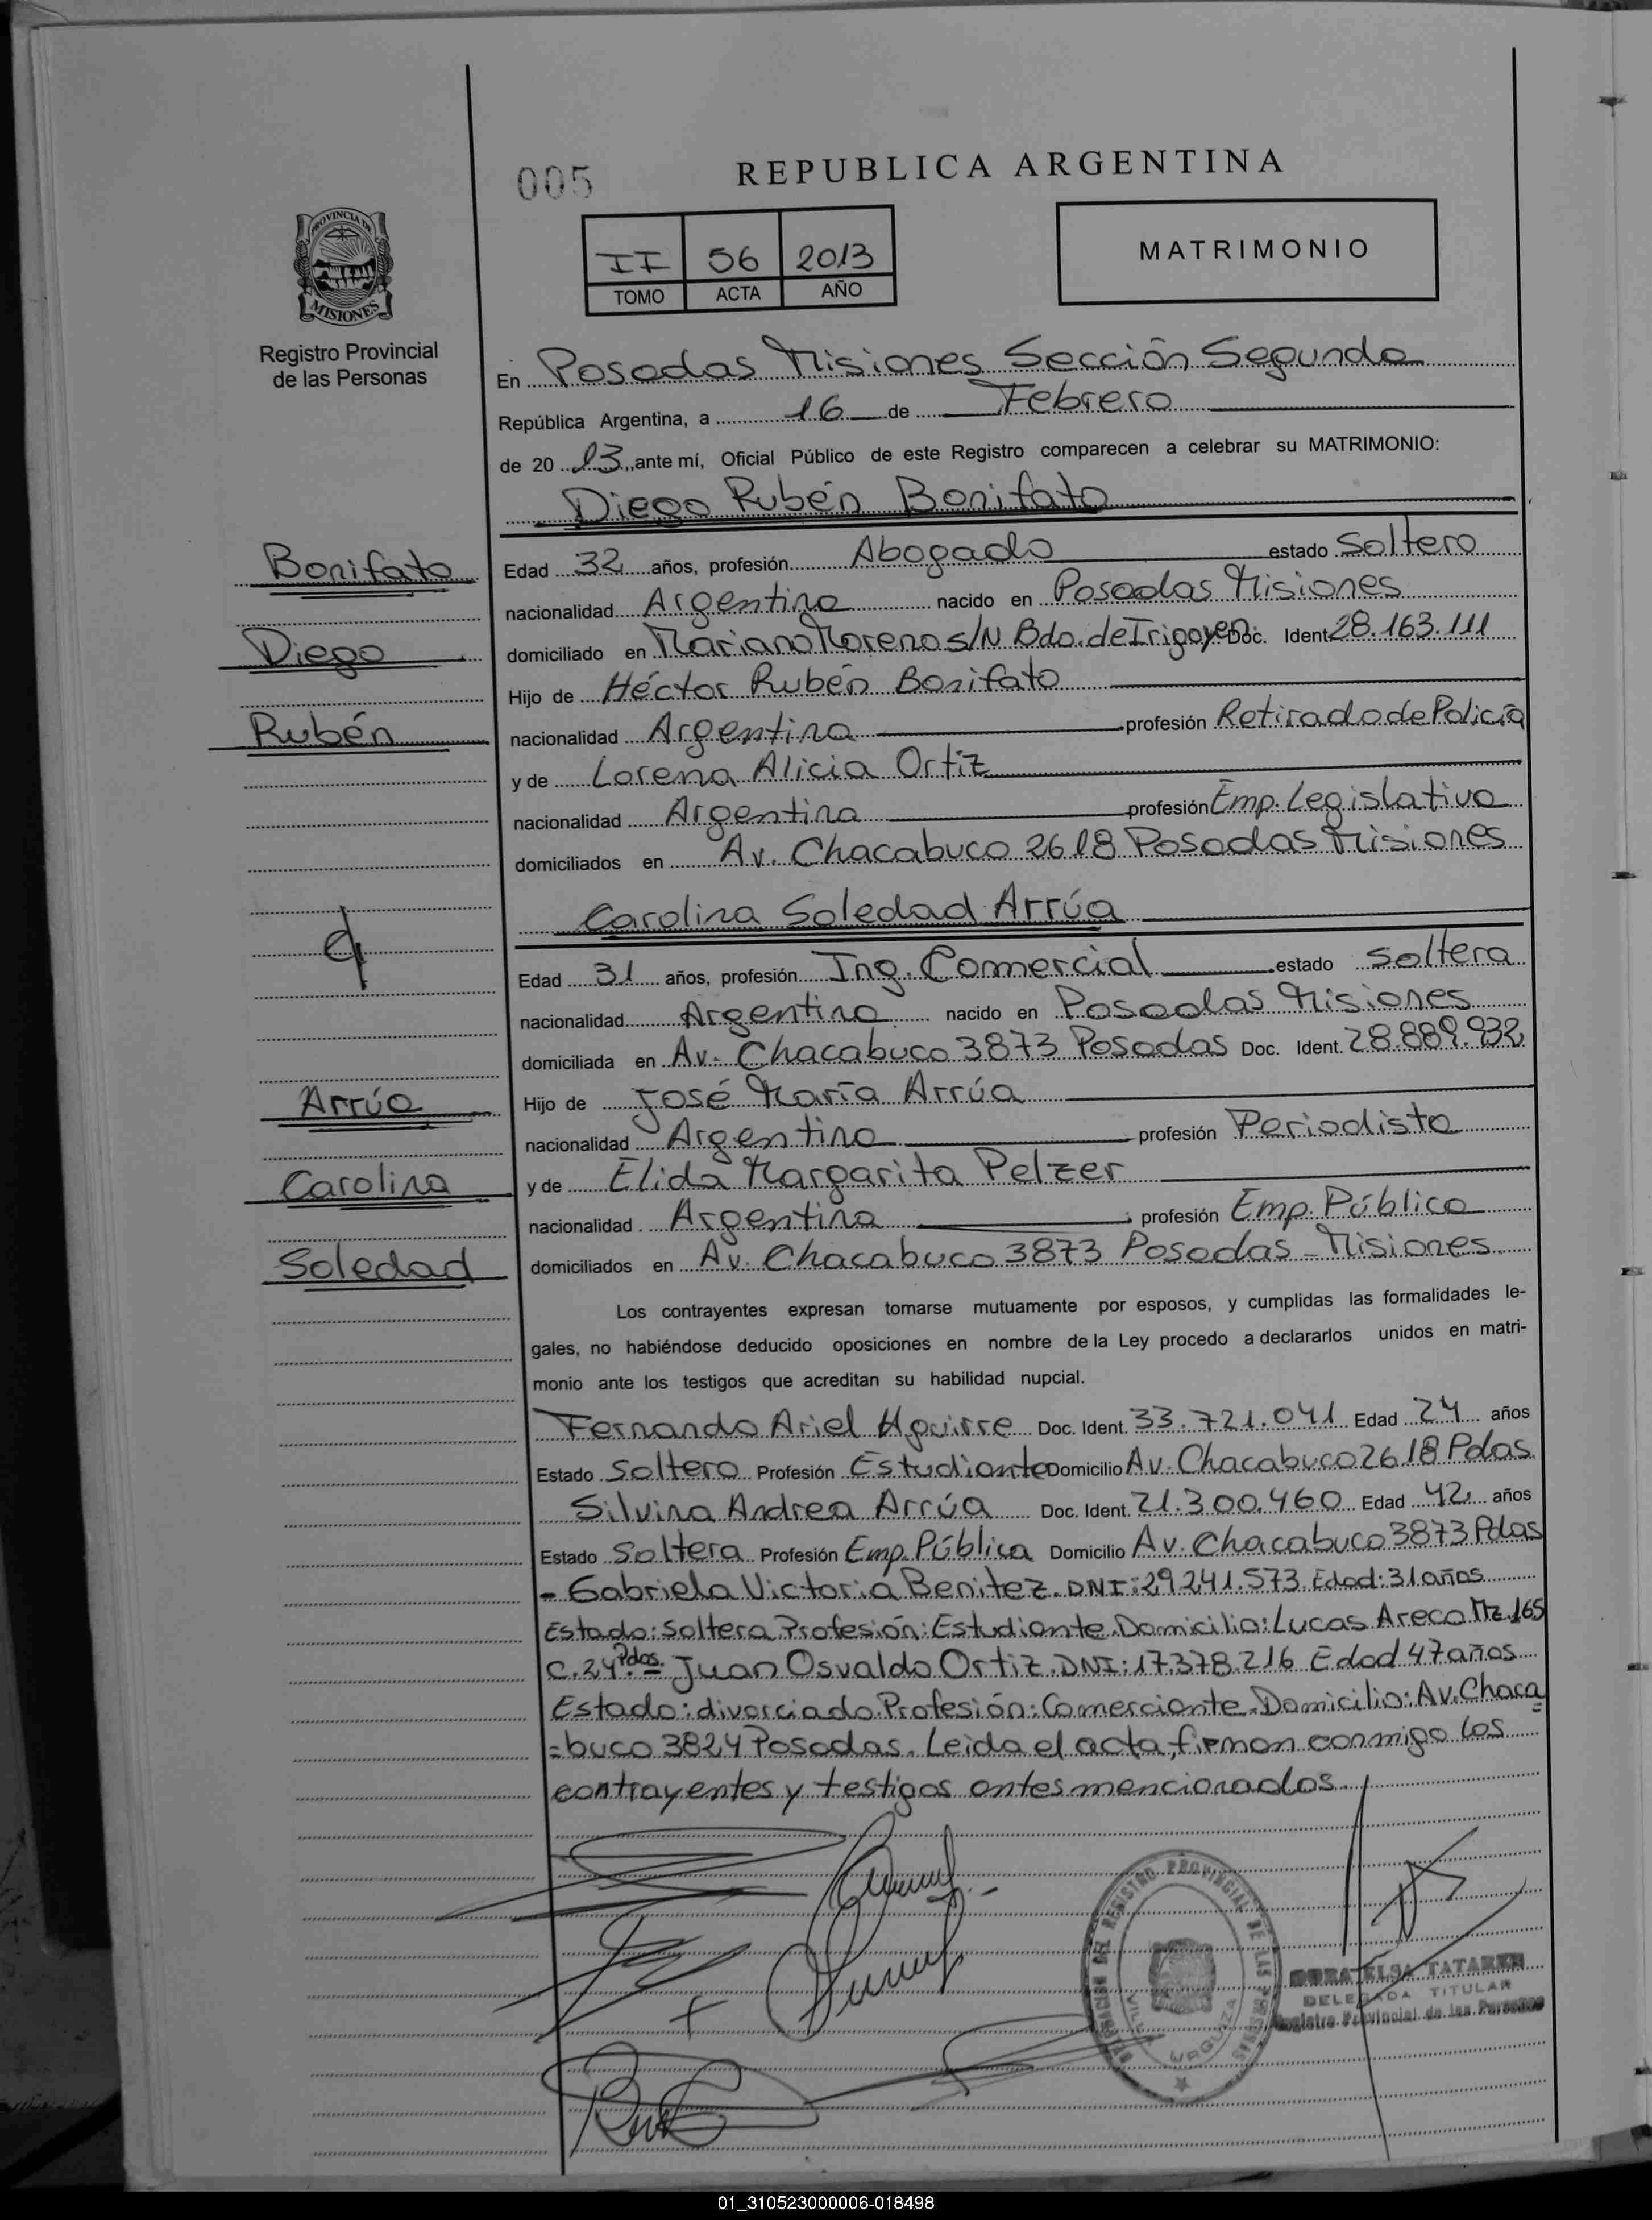 005
REPUBLICA ARGENTINA
PROVINCIA DE
MISIONES
Registro Provincial
de las Personas
II 56 2013
TOMO ACTA AÑO
MATRIMONIO
En Posadas Misiones Sección Segunda
República Argentina, a 16 de Febrero
de 20 13, ante mí, Oficial Público de este Registro comparecen a celebrar su MATRIMONIO:
Diego Rubén Bonifato
Bonifato
Diego
Rubén
Edad 32 años, profesión Abogado estado Soltero
nacionalidad Argentina nacido en Posadas Misiones
domiciliado en Mariano Moreno s/N Bdo. de Irigoyen. Doc. Ident 28.163.111
Hijo de Héctor Rubén Bonifato
nacionalidad Argentina profesión Retirado de Policía
y de Lorena Alicia Ortiz
nacionalidad Argentina profesión Emp. Legislativa
domiciliados en Av. Chacabuco 2618 Posadas Misiones
Carolina Soledad Arrúa
Edad 31 años, profesión Ing. Comercial estado Soltera
nacionalidad Argentina nacido en Posadas Misiones
domiciliada en Av. Chacabuco 3873 Posadas Doc. Ident. 28.889.932
Arrúa
Carolina
Soledad
Hijo de José María Arrúa
nacionalidad Argentina profesión Periodista
y de Elida Margarita Pelzer
nacionalidad Argentina profesión Emp. Pública
domiciliados en Av. Chacabuco 3873 Posadas - Misiones
Los contrayentes expresan tomarse mutuamente por esposos, y cumplidas las formalidades le-
gales, no habiéndose deducido oposiciones en nombre de la Ley procedo a declararlos unidos en matri-
monio ante los testigos que acreditan su habilidad nupcial.
Fernando Ariel Aguirre Doc. Ident. 33.721.041 Edad 24 años
Estado Soltero Profesión Estudiante Domicilio Av. Chacabuco 2618 Pdas.
Silvina Andrea Arrúa Doc. Ident. 21.300.460 Edad 42 años
Estado Soltera Profesión Emp. Pública Domicilio Av. Chacabuco 3873 Pdas
- Gabriela Victoria Benitez. DNI: 29.241.573 Edad: 31 años
Estado: Soltera Profesión: Estudiante. Domicilio: Lucas Areco Mz. 165
C. 24 Pdas. = Juan Osvaldo Ortiz. DNI: 17.378.216 Edad 47 años
Estado: divorciado. Profesión: Comerciante. Domicilio: Av. Chaca=
=buco 3824 Posadas. Leida el acta, firman conmigo los
contrayentes y testigos antes mencionados.
DEL REGISTRO PROVINCIAL DE LAS
TATAREN
DELEGADA TITULAR
Registro Provincial de las Personas
01_310523000006-018498